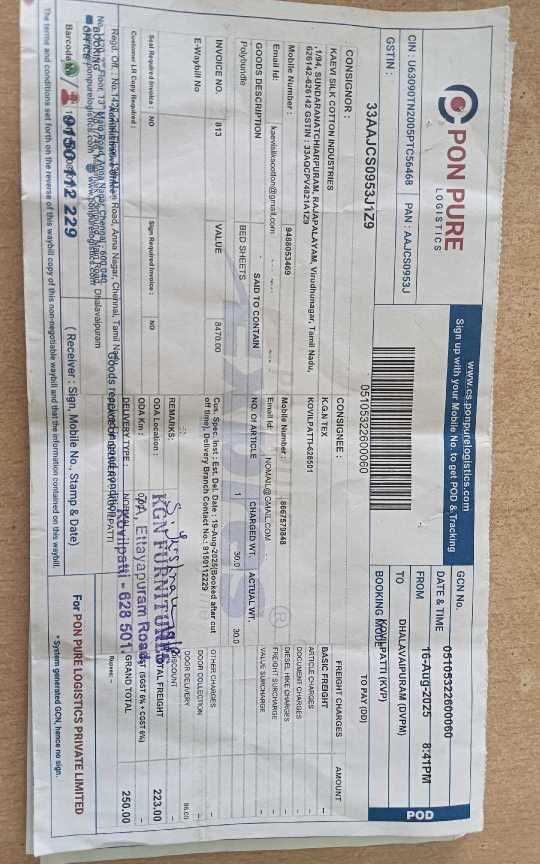 PON PURE
LOGISTICS
www.cs.ponpurelogistics.com
Sign up with your Mobile No. to get POD & Tracking
CIN : U63090TN2005PTC56468 PAN : AAJCS0953J
GSTIN :
33AAJCS0953J1Z9
05105322600060
GCN No. 05105322600060
DATE & TIME 16-Aug-2025 8:41PM
FROM DHALAVAIPURAM (DVPM)
TO KOVILPATTI (KVP)
BOOKING MODE TO PAY (DD)
POD
CONSIGNOR :
KAEVI SILK COTTON INDUSTRIES
,1/94, SUNDARANATCHIARPURAM, RAJAPALAYAM, Virudhunagar, Tamil Nadu,
626142-626142 GSTIN : 33AQCPV4821A1Z9
Mobile Number : 9488053469
Email Id: kaevisilkscotton@gmail.com
CONSIGNEE :
K.G.N TEX
KOVILPATTI-628501
Mobile Number : 8667570848
Email Id: NOMAIL@GMAIL.COM
GOODS DESCRIPTION SAID TO CONTAIN NO. OF ARTICLE CHARGED WT. ACTUAL WT.
Polybundle BED SHEETS 1 30.0 30.0
INVOICE NO. 813 VALUE 8470.00
E-Waybill No
Cus. Spec. Inst : Est. Del. Date : 19-Aug-2025(Booked after cut
off time), Delivery Branch Contact No.: 9150112229
Seal Required Invoice : NO Sign Required Invoice : NO
Customer LR Copy Required :
REMARKS:
ODA Location :
ODA Km :
DELIVERY TYPE : NORMAL
FREIGHT CHARGES AMOUNT
BASIC FREIGHT -
ARTICLE CHARGES -
DOCUMENT CHARGES -
DIESEL HIKE CHARGES -
FREIGHT SURCHARGE -
VALUE SURCHARGE -
OTHER CHARGES
DOOR COLLECTION
DOOR DELIVERY
DISCOUNT
TOTAL FREIGHT 223.00
GST (SGST 6% + CGST 6%)
GRAND TOTAL 250.00
Rupees: --
KGN FURNITURE
Ettayapuram Road,
Kovilpatti - 628 501.
BOOKING
OFFICE
Dhalavaipuram
Barcode
9150 112 229
Goods received in good condition
( Receiver : Sign, Mobile No., Stamp & Date)
For PON PURE LOGISTICS PRIVATE LIMITED
*System generated GCN, hence no sign.
The terms and conditions set forth on the reverse of this waybill copy of this non-negotiable waybill and that the information contained on this waybill.